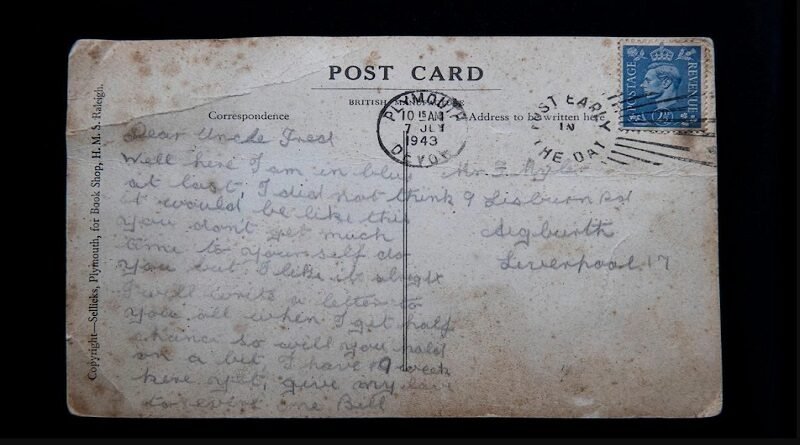 POST CARD
BRITISH MANUFACTURE
Correspondence
Address to be written here
PLYMOUTH
10 15 AM
7 JLY
1943
DEVON
POST EARLY
IN
THE DAY
POSTAGE
REVENUE
2½D
Copyright—Sellicks, Plymouth, for Book Shop, H. M. S. Raleigh.
Dear Uncle Fred
Well here I am in blue
at last, I did not think
it would be like this
you dont get much
time to yourself do
you but I like it alright
I will write a letter to
you all when I get half
chance so will you hold
on a bit I have 9 week
here yet, give my love
to every one Bill
Mr F
9 Lisburn Rd
Aigburth
Liverpool 17